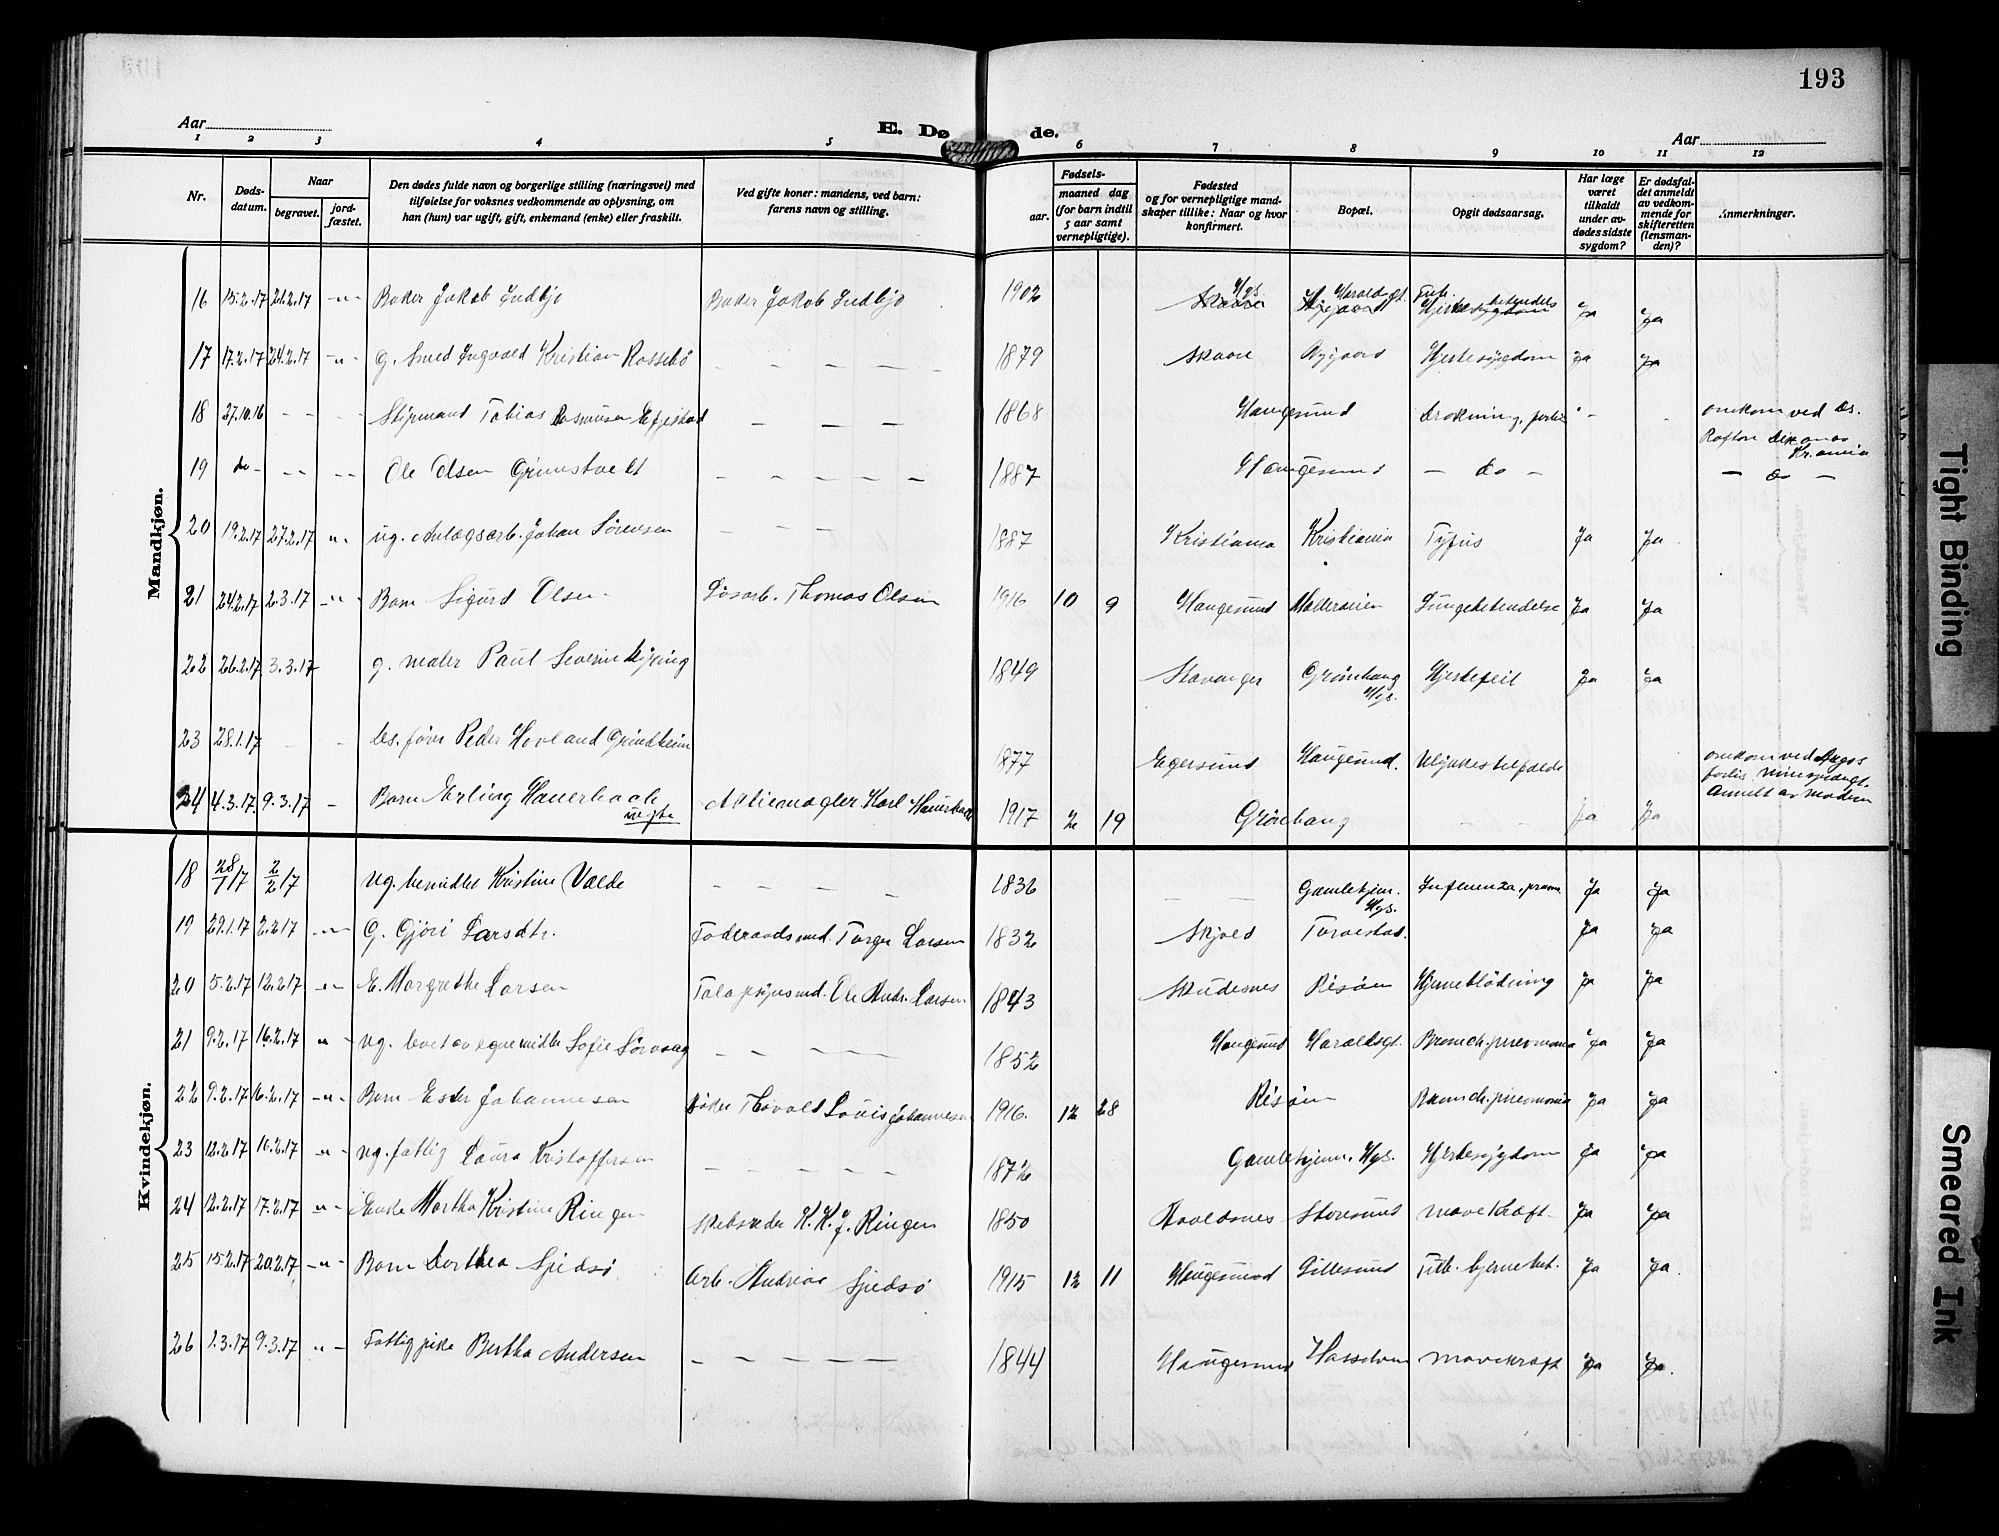 193
Aar
E. Dø de.
Aar
1 2 3 4 5 6 7 8 9 10 11 12
Nr.
Døds-datum.
Naar
begravet.
jord-fæstet.
Den dødes fulde navn og borgerlige stilling (næringsvei) med
tilføielse for voksnes vedkommende av oplysning, om
han (hun) var ugift, gift, enkemand (enke) eller fraskilt.
Ved gifte koner: mandens, ved barn:
farens navn og stilling.
Fødsels-
aar.
maaned dag
(for barn indtil
5 aar samt
vernepligtige).
Fødested
og for vernepligtige mand-
skaper tillike: Naar og hvor
konfirmert.
Bopæl.
Opgit dødsaarsag.
Har læge
været
tilkaldt
under av-
dødes sidste
sygdom?
Er dødsfal-
det anmeldt
av vedkom-
mende for
skifteretten
(lensman-
den)?
Anmerkninger.
Mandkjøn.
16 15.2.17 21.2.17 -"- Baker Jakob Indbjo Baker Jakob Indbjo 1902 Skaare Hgs. Haraldsgt. Tub. Ja Ja
17 17.2.17 24.2.17 -"- g. Smed Ingvald Kristian Rossebö - - - - - 1879 Skaare Rygjaard Hjertesygdom Ja Ja
18 27.10.16 - - - - Styrmand Tobias Rasmusen - - - - 1868 Haugesund Drukning, forlis - - omkom ved Ds.
19 do - - - - - Ole Olsen Grimstvedt - - - - - 1887 Haugesund - do - - do -
20 19.2.17 27.2.17 -"- ug. Anlægsarb. Johan Sörensen - - - 1887 Kristiania Kristiania Tyfus Ja Ja
21 24.2.17 2.3.17 -"- Barn Sigurd Olsen Løsarb. Thomas Olsen 1916 10 9 Haugesund Møllerveien Lungebetendelse Ja Ja
22 26.2.17 3.3.17 g. maler Paul Severin 1849 Stavanger Grönhaug Hgs. Hjertefeil Ja Ja
23 28.1.17 - - Ds. förer Peder Hovland Grindheim 1877 Egersund Haugesund. Ulykkestilfælde omkom ved
24 4.3.17 9.3.17 - Barn Erling Hauerbach Aktiemægler Karl Hauerbach 1917 2 19 Grönhaug - - Ja Ja
Kvindekjøn.
18 28/1 17 2/2 17 ug. bemidlet Kristine Valde - - - - - 1836 - - Gamlehjem. Hgs. Influenza, Ja Ja
19 29.1.17 2.2.17 -"- G. Gjöri Larsdtr. Föderaadsmd. Torger Larsen 1832 Skjold Torvestad. Ja Ja
20 5.2.17 12.2.17 -"- E. Margrethe Larsen Ole Andr. Larsen 1843 Skudesnes Risöen Hjerneblödning Ja Ja
21 9.2.17 16.2.17 " - ug. levet av egne midler Sofie Sörvaag - - - - 1852 Haugesund Haraldsgt. Bronch. pneumonia Ja Ja
22 9.2.17 16.2.17 -"- Barn Ester Johannesen Bøder Thorvald Louis Johannesen 1916. 12 28 Risöen Bronch. pneumonia Ja Ja
23 12.2.17 16.2.17 -"- ug. fattig Laura Kristoffersen - - - - - 1872 Gamlehjem. Hgs. Hjertesygdom Ja Ja
24 12.2.17 17.2.17 " - Enke Martha Kristine Ringen Skibsreder K. K. J. Ringen 1850 Avaldsnes Storesund mavekræft Ja Ja
25 15.2.17 20.2.17 -"- Barn Dorthea Spidsö Arb. Andreas Spidsö 1915 12 11 Haugesund Gillesund Tub. hjernebet. Ja Ja.
26 1.3.17 9.3.17 " - Fattig pike Bertha Andersen - - - - - 1844 Haugesund Hasselven mavekræft Ja Ja.
Tight Binding
Smeared Ink